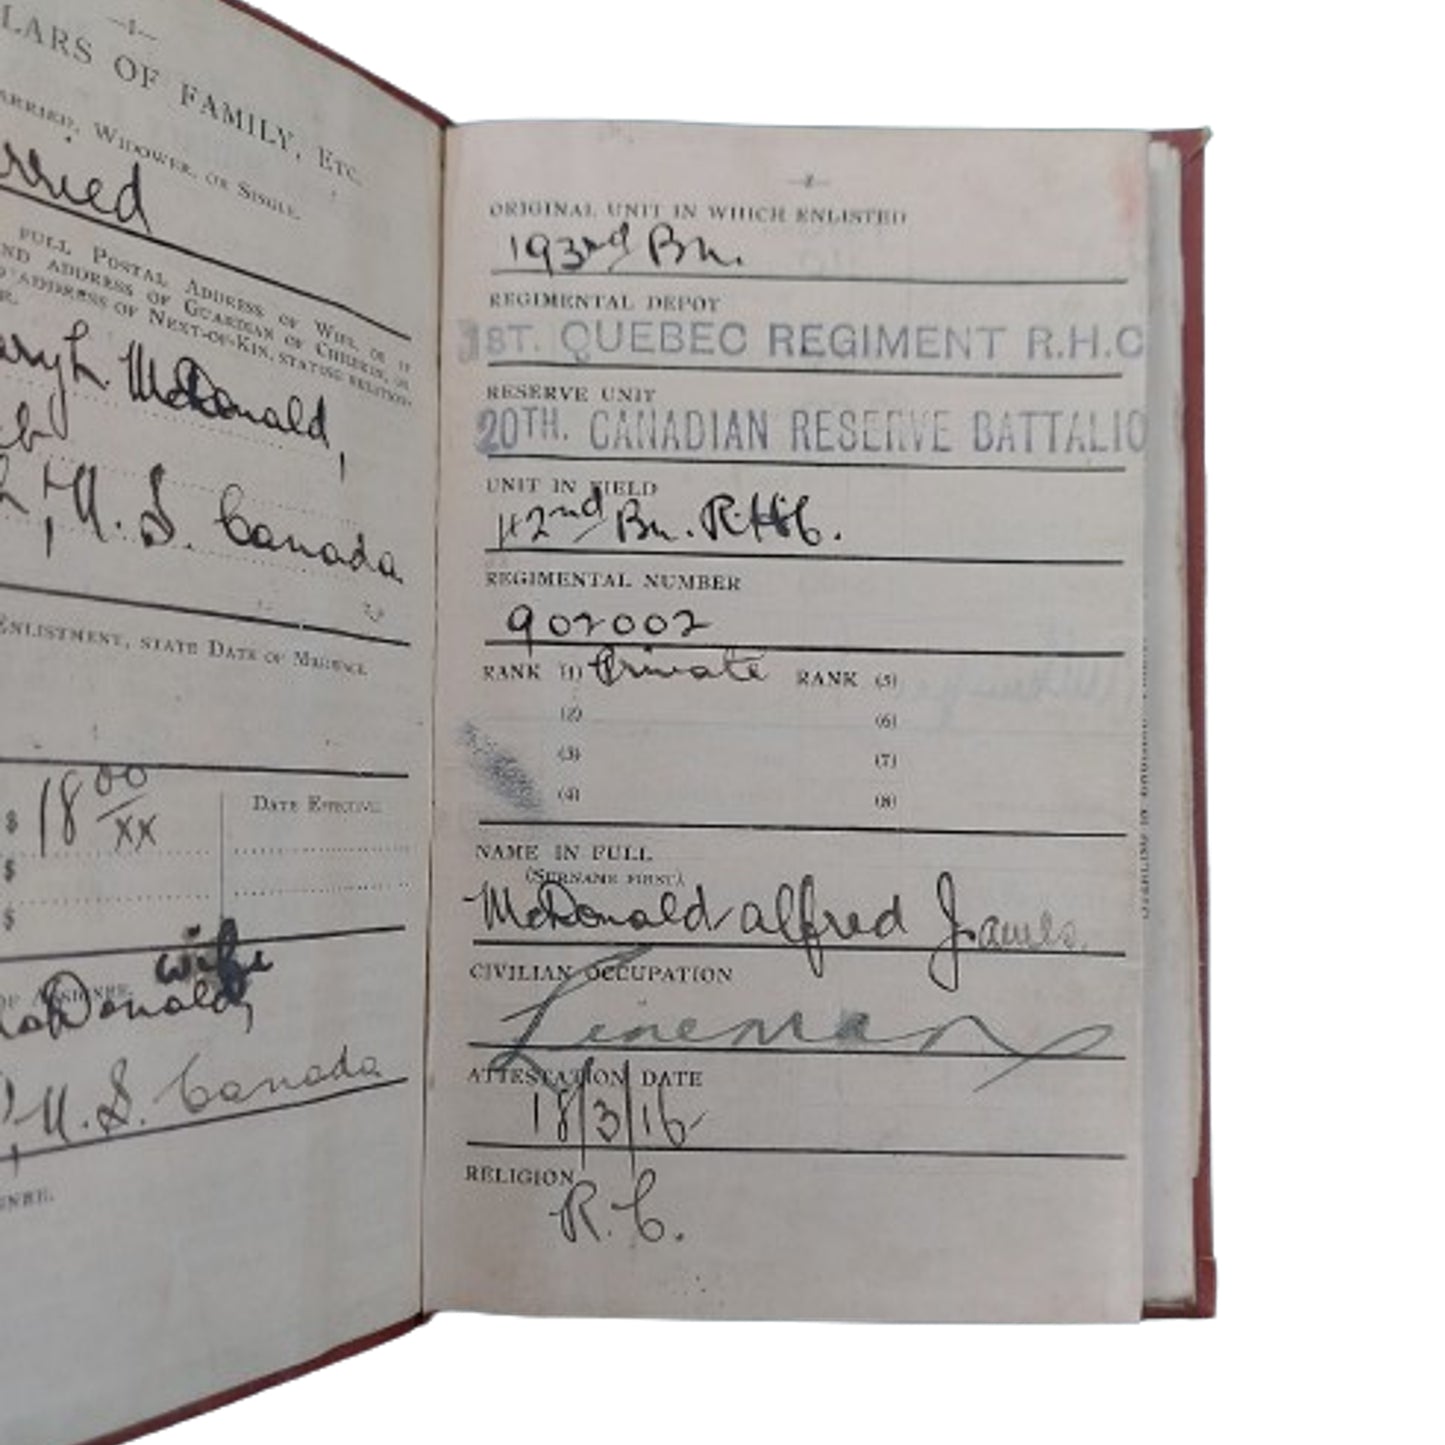 —1—
LARS OF FAMILY, ETC.
ARRIED, WIDOWER, OR SINGLE.
rried
FULL POSTAL ADDRESS OF WIFE, OR IF
ND ADDRESS OF GUARDIAN OF CHILDREN, OR
ADDRESS OF NEXT-OF-KIN, STATING RELATION-
ary L. McDonald,
N. S. Canada
ENLISTMENT, STATE DATE OF MARRIAGE
$ 18 00/xx
DATE EFFECTIVE
$
$
wife
OF ASSIGNEE.
Donald,
N. S. Canada
GNEE.
—2—
ORIGINAL UNIT IN WHICH ENLISTED
193rd Bn.
REGIMENTAL DEPOT
1ST. QUEBEC REGIMENT R.H.C
RESERVE UNIT
20TH. CANADIAN RESERVE BATTALIO
UNIT IN FIELD
42nd Bn. R.H.C.
REGIMENTAL NUMBER
902002
RANK (1) Private RANK (5)
(2) (6)
(3) (7)
(4) (8)
NAME IN FULL
(SURNAME FIRST)
McDonald Alfred James.
CIVILIAN OCCUPATION
Lineman
ATTESTATION DATE
18/3/16
RELIGION
R.C.